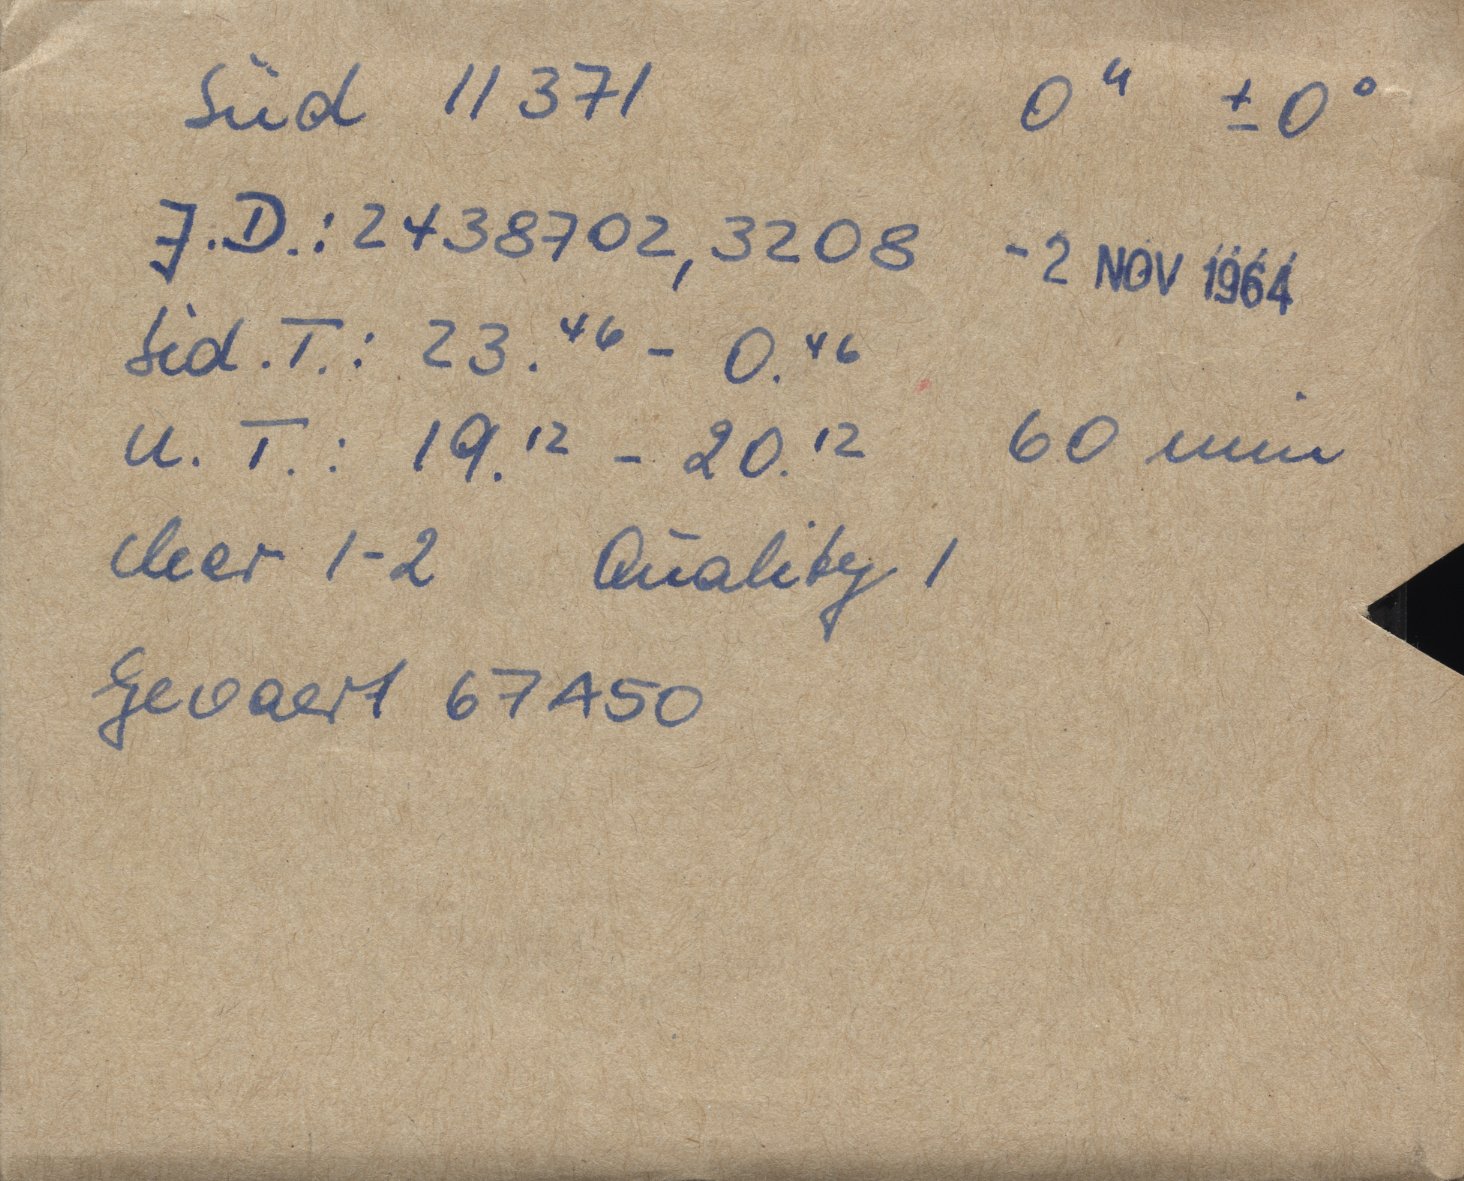 Süd 11371 0ʰ ±0°
J.D.: 2438702,3208 -2 NOV 1964
Sid.T.: 23.⁴⁶ - 0.⁴⁶
U.T.: 19.¹² - 20.¹² 60 min
clear 1-2 Quality 1
Gevaert 67A50